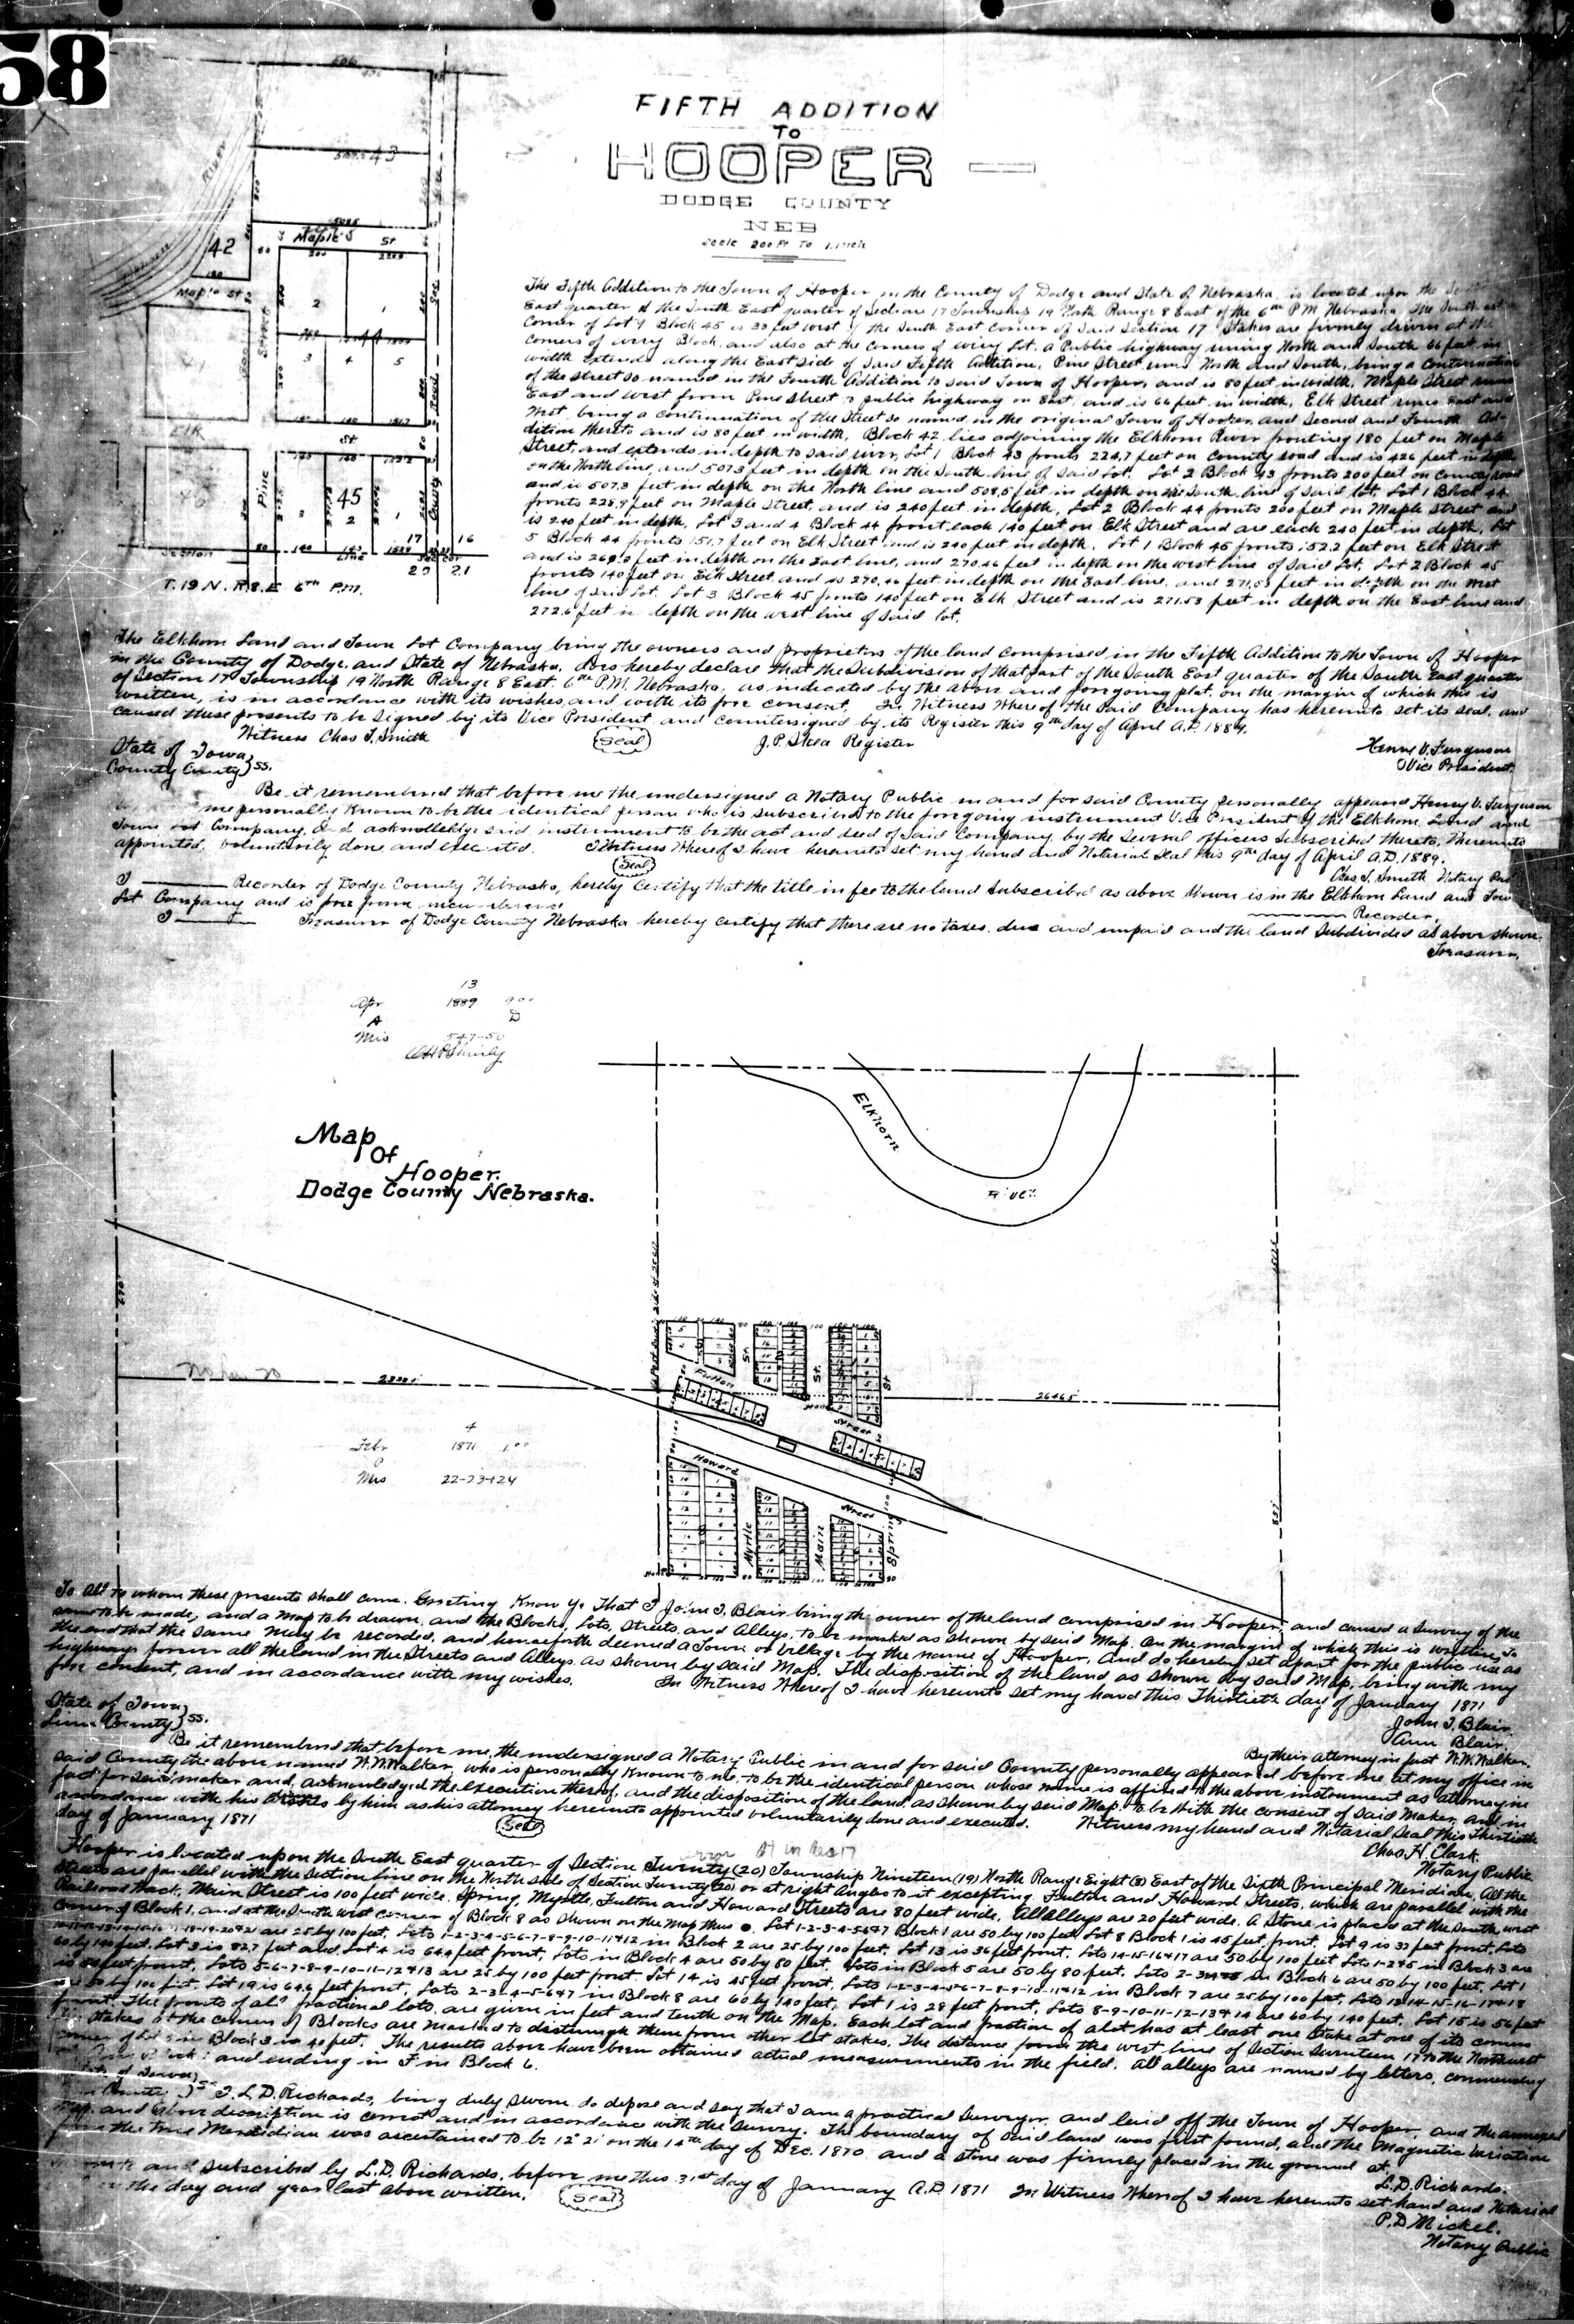 58
FIFTH ADDITION
TO
HOOPER
DODGE COUNTY
NEB
Scale 200 Ft To 1 Inch
River
43
42
Maple St
Maple St
Pine Street
44
Elk St
45
County Road
17 16
20 21
T. 19 N. R. 8. E 6th P.M.
The Fifth Addition to the Town of Hooper, in the County of Dodge and State of Nebraska, is located upon the South
East quarter of the South East quarter of Section 17 Township 19 North Range 8 East of the 6th P.M. Nebraska. The South east
corner of Lot 1 Block 45 is 33 feet west of the South East Corner of said Section 17. Stakes are firmly driven at the
corners of every Block, and also at the corners of every Lot. A Public highway runing North and South 66 feet in
width extends along the East side of said Fifth Addition, Pine Street runs North and South, being a continuation
of the street so named in the Fourth Addition to said Town of Hooper, and is 80 feet in width. Maple Street runs
East and west from Pine Street to public highway on East, and is 66 feet in width. Elk Street runs East and
West, being a continuation of the Street so named in the original Town of Hooper, and Second and Fourth Ad-
dition thereto and is 80 feet in width. Block 42 lies adjoining the Elkhorn River fronting 180 feet on Maple
Street, and extends in depth to said river, Lot 1 Block 43 fronts 224.7 feet on County road and is 426 feet in depth
on the North line, and 507.3 feet in depth on the South line of said Lot. Lot 2 Block 43 fronts 200 feet on County road
and is 507.3 feet in depth on the North line and 508.5 feet in depth on the South line of said lot. Lot 1 Block 44
fronts 228.9 feet on Maple Street, and is 240 feet in depth, Lot 2 Block 44 fronts 200 feet on Maple Street and
is 240 feet in depth, Lot 3 and 4 Block 44 front each 140 feet on Elk Street and are each 240 feet in depth, Lot
5 Block 44 fronts 151.7 feet on Elk Street and is 240 feet in depth. Lot 1 Block 45 fronts 152.2 feet on Elk Street
and is feet in depth on the East line, and 270.46 feet in depth on the west line of said Lot. Lot 2 Block 45
fronts 140 feet on Elk Street, and is 270.46 feet in depth on the East line, and 271.53 feet in depth on the West
line of said Lot. Lot 3 Block 45 fronts 140 feet on Elk Street and is 271.53 feet in depth on the East line and
272.6 feet in depth on the west line of said lot.
The Elkhorn Land and Town Lot Company being the owners and proprietors of the land comprised in the Fifth Addition to the Town of Hooper
in the County of Dodge, and State of Nebraska, does hereby declare that the Subdivision of that part of the South East quarter of the South East quarter
of Section 17 Township 19 North Range 8 East. 6th P.M. Nebraska, as indicated by the above and foregoing plat, on the margin of which this is
written, is in accordance with its wishes and with its free consent. In Witness Whereof the said Company has hereunto set its seal, and
caused these presents to be signed by its Vice President, and countersigned by its Register this 9th day of April A.D. 1889.
Witness Chas T. Smith
Seal
J. P. Shea Register
Henry V. Ferguson
Vice President
State of Iowa
County County } ss.
Be it remembered that before me the undersigned a Notary Public in and for said County personally appeared Henry V. Ferguson
me personally known to be the identical person who is subscribed to the foregoing instrument Vice President of the Elkhorn Land and
Town Lot Company, and acknowledge said instrument to be the act and deed of said Company, by the several officers subscribed thereto, thereunto
appointed, voluntarily done and executed. In Witness Whereof I have hereunto set my hand and Notarial Seal this 9th day of April A.D. 1889.
Seal
Chas T. Smith Notary Pub
I Recorder of Dodge County Nebraska, hereby Certify that the title in fee to the land subscribed as above shown is in the Elkhorn Land and Town
Lot Company and is free from
Recorder.
I Treasurer of Dodge County Nebraska hereby certify that there are no taxes, due and unpaid and the land subdivided as above shown.
Treasurer.
13
Apr 1889 9 00
A D
Mis 547-50
Map
Of
Hooper.
Dodge County Nebraska.
Elkhorn
River
26465
Fulton Street
Howard Street
Myrtle
Main
Spring
St
St
St
4
Febr 1871 1 00
Mis 22-23+24
To All to whom these presents shall come. Greeting Know Ye That I John I. Blair being the owner of the land comprised in Hooper, and caused a survey of the
same to be made, and a Map to be drawn, and the Blocks, Lots, Streets, and Alleys, to be marked as shown by said Map. On the margin of which this is written, to
the end that the same may be recorded, and henceforth deemed a Town or Village by the name of Hooper, And do hereby set apart for the public use as
highways forever all the land in the Streets and Alleys, as shown by said Map. The disposition of the land as shown by said Map, being with my
free consent, and in accordance with my wishes. In Witness Whereof I have hereunto set my hand this Thirtieth day of January 1871
John I. Blair.
Ann Blair.
By their attorney in fact W.W. Walker.
State of Iowa
Linn County } ss.
Be it remembered that before me, the undersigned a Notary Public in and for said County personally appeared before me at my office in
said County the above named W.W. Walker, who is personally known to me, to be the identical person whose name is affixed to the above instrument as attorney in
fact for said maker and, acknowledged the execution thereof, and the disposition of the land, as shown by said Map, to be with the consent of said Maker, and in
accordance with his wishes by him as his attorney hereunto appointed voluntarily done and executed. Witness my hand and Notarial Seal this Thirtieth
day of January 1871
Seal
Chas. H. Clark.
Notary Public
Hooper is located upon the South East quarter of Section Twenty (20) Township Nineteen (19) North Range Eight (8) East of the Sixth Principal Meridian, All the
Streets are parallel with the Section line on the North side of Section Twenty (20) or at right Angles to it excepting Fulton and Howard Streets, which are parallel with the
Railroad track, Main Street is 100 feet wide. Spring, Myrtle, Fulton and Howard Streets are 80 feet wide. All alleys are 20 feet wide. A Stone is placed at the South west
corner of Block 1, and at the South west corner of Block 8 as shown on the Map thus ●. Lot 1-2-3-4-5-6+7 Block 1 are 50 by 100 feet. Lot 8 Block 1 is 45 feet, front. Lot 9 is 33 feet front, Lots
are 25 by 100 feet, Lots 1-2-3-4-5-6-7-8-9-10-11+12 in Block 2 are 25 by 100 feet, Lot 13 is 36 feet front. Lots 14-15-16+17 are 50 by 100 feet Lots 1-2+5 in Block 3 are
60 by 140 feet. Lot 3 is 82.7 feet and Lot 4 is 64.9 feet front, Lots in Block 4 are 50 by 80 feet. Lots in Block 5 are 50 by 80 feet. Lots in Block 6 are 50 by 100 feet, Lot 1
is feet front, Lots 5-6-7-8-9-10-11-12+13 are 25 by 100 feet front. Lot 14 is 45 feet front, Lots 1-2-3-4-5-6-7-8-9-10-11+12 in Block 7 are 25 by 100 feet, Lots 13-14-15-16-17+18
are 50 by 100 feet. Lot 19 is 64.6 feet front, Lots 2-3-4-5-6+7 in Block 8 are 60 by 140 feet, Lot 1 is 28 feet front. Lots 8-9-10-11-12-13+14 are 60 by 140 feet. Lot 15 is 56 feet
front. The fronts of all fractional lots, are given in feet and tenth on the Map. Each lot and fraction of a lot has at least one Stake at one of its corners
Stakes at the corners of Blocks are marked to distinguish them from other lot stakes, The distance from the west line of Section Seventeen 17 to the Northwest
corner of Lot in Block 3 is 41 feet. The results above have been obtained actual measurements in the field. All alleys are named by letters, commencing
and ending in F in Block 6.
I, L. D. Richards, being duly sworn do depose and say that I am a practical Surveyor, and laid off the Town of Hooper, and the annexed
Map, and above description is correct and in accordance with the survey. The boundary of said land was first found, and the Magnetic Variation
from the true Meridian was ascertained to be 12° 21' on the 14th day of Dec. 1870 and a stone was firmly placed in the ground at,
L. D. Richards.
and subscribed by L. D. Richards, before me this 31st day of January A.D. 1871 In Witness Whereof I have hereunto set hand and Notarial
the day and year last above written.
Seal
P. D Mickel.
Notary Public